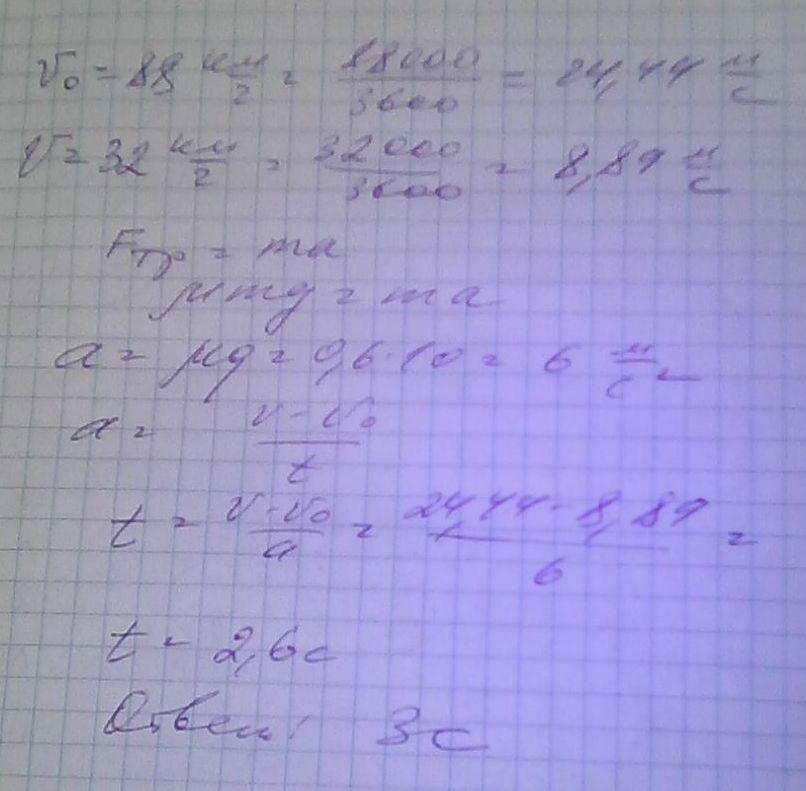 v₀ = 88 км/г = 88000/3600 = 24,44 м/с
v = 32 км/г = 32000/3600 = 8,89 м/с
Fтр = ma
μmg = ma
a = μg = 0,6·10 = 6 м/с²
a = v-v₀/t
t = v-v₀/a = 24,44-8,89/6 =
t = 2,6с
Ответ: 3с